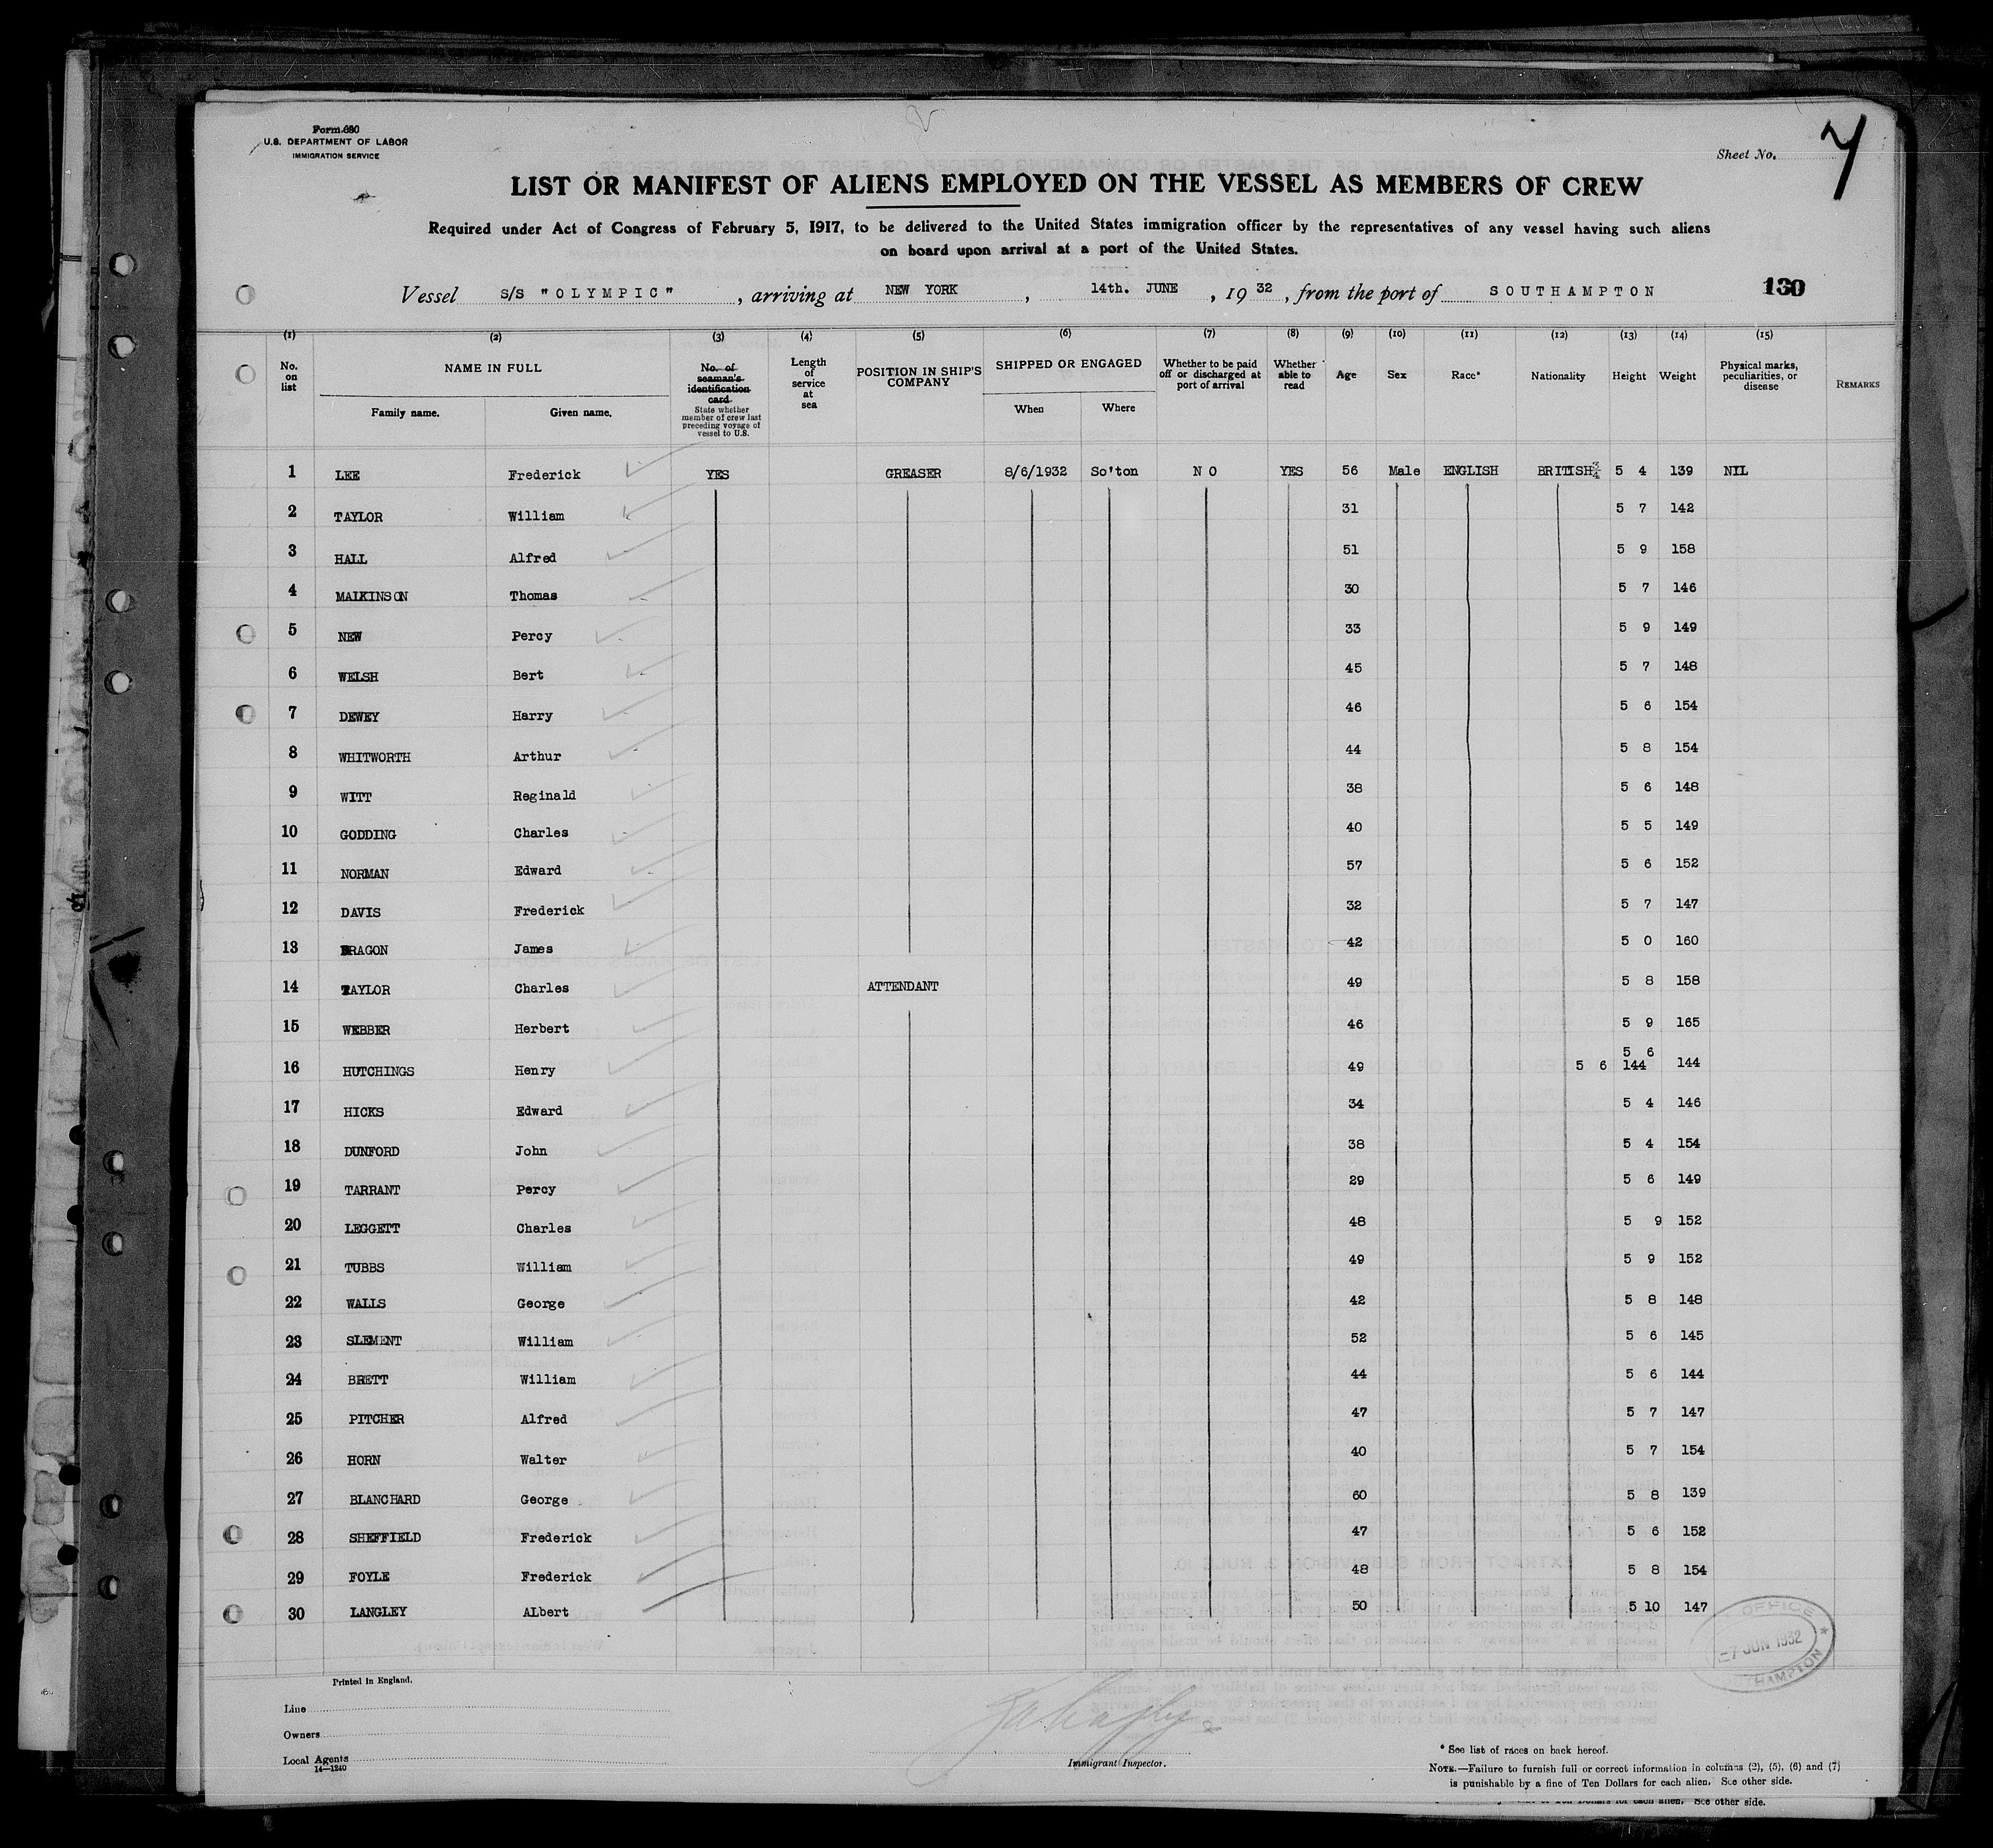 Form 680
U.S. DEPARTMENT OF LABOR
IMMIGRATION SERVICE
Sheet No. 7
LIST OR MANIFEST OF ALIENS EMPLOYED ON THE VESSEL AS MEMBERS OF CREW
Required under Act of Congress of February 5, 1917, to be delivered to the United States immigration officer by the representatives of any vessel having such aliens
on board upon arrival at a port of the United States.
Vessel S/S "OLYMPIC", arriving at NEW YORK, 14th. JUNE, 1932, from the port of SOUTHAMPTON 130
(1) (2) (3) (4) (5) (6) (7) (8) (9) (10) (11) (12) (13) (14) (15)
No. on list NAME IN FULL Family name. Given name. No. of seaman's identification card State whether member of crew last preceding voyage of vessel to U.S. Length of service at sea POSITION IN SHIP'S COMPANY SHIPPED OR ENGAGED When Where Whether to be paid off or discharged at port of arrival Whether able to read Age Sex Race* Nationality Height Weight Physical marks, peculiarities, or disease REMARKS
1 LEE Frederick YES GREASER 8/6/1932 So'ton NO YES 56 Male ENGLISH BRITISH 5 4 139 NIL
2 TAYLOR William 31 5 7 142
3 HALL Alfred 51 5 9 158
4 MALKINSON Thomas 30 5 7 146
5 NEW Percy 33 5 9 149
6 WELSH Bert 45 5 7 148
7 DEWEY Harry 46 5 6 154
8 WHITWORTH Arthur 44 5 8 154
9 WITT Reginald 38 5 6 148
10 GODDING Charles 40 5 5 149
11 NORMAN Edward 57 5 6 152
12 DAVIS Frederick 32 5 7 147
13 DRAGON James 42 5 0 160
14 TAYLOR Charles ATTENDANT 49 5 8 158
15 WEBBER Herbert 46 5 9 165
5 6
16 HUTCHINGS Henry 49 5 6 144 144
17 HICKS Edward 34 5 4 146
18 DUNFORD John 38 5 4 154
19 TARRANT Percy 29 5 6 149
20 LEGGETT Charles 48 5 9 152
21 TUBBS William 49 5 9 152
22 WALLS George 42 5 8 148
23 SLEMENT William 52 5 6 145
24 BRETT William 44 5 6 144
25 PITCHER Alfred 47 5 7 147
26 HORN Walter 40 5 7 154
27 BLANCHARD George 60 5 8 139
28 SHEFFIELD Frederick 47 5 6 152
29 FOYLE Frederick 48 5 8 154
30 LANGLEY ALbert 50 5 10 147
OFFICE
7 JUN 1932
HAMPTON
Printed in England.
Line
Owners
Local Agents
14—1240
Immigrant Inspector.
* See list of races on back hereof.
NOTE.—Failure to furnish full or correct information in columns (2), (5), (6) and (7)
is punishable by a fine of Ten Dollars for each alien. See other side.
of Ten Dollars for each alien. See other side.